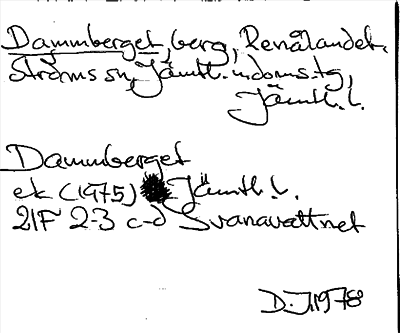 Dammberget, berg, Renålandet,
Ströms sn, Jämtl. n. doms. tg,
Jämtl. l.
Dammberget
ek (1975) Jämtl. l.
21F 2-3 c-d Svanavattnet
D.J. 1978